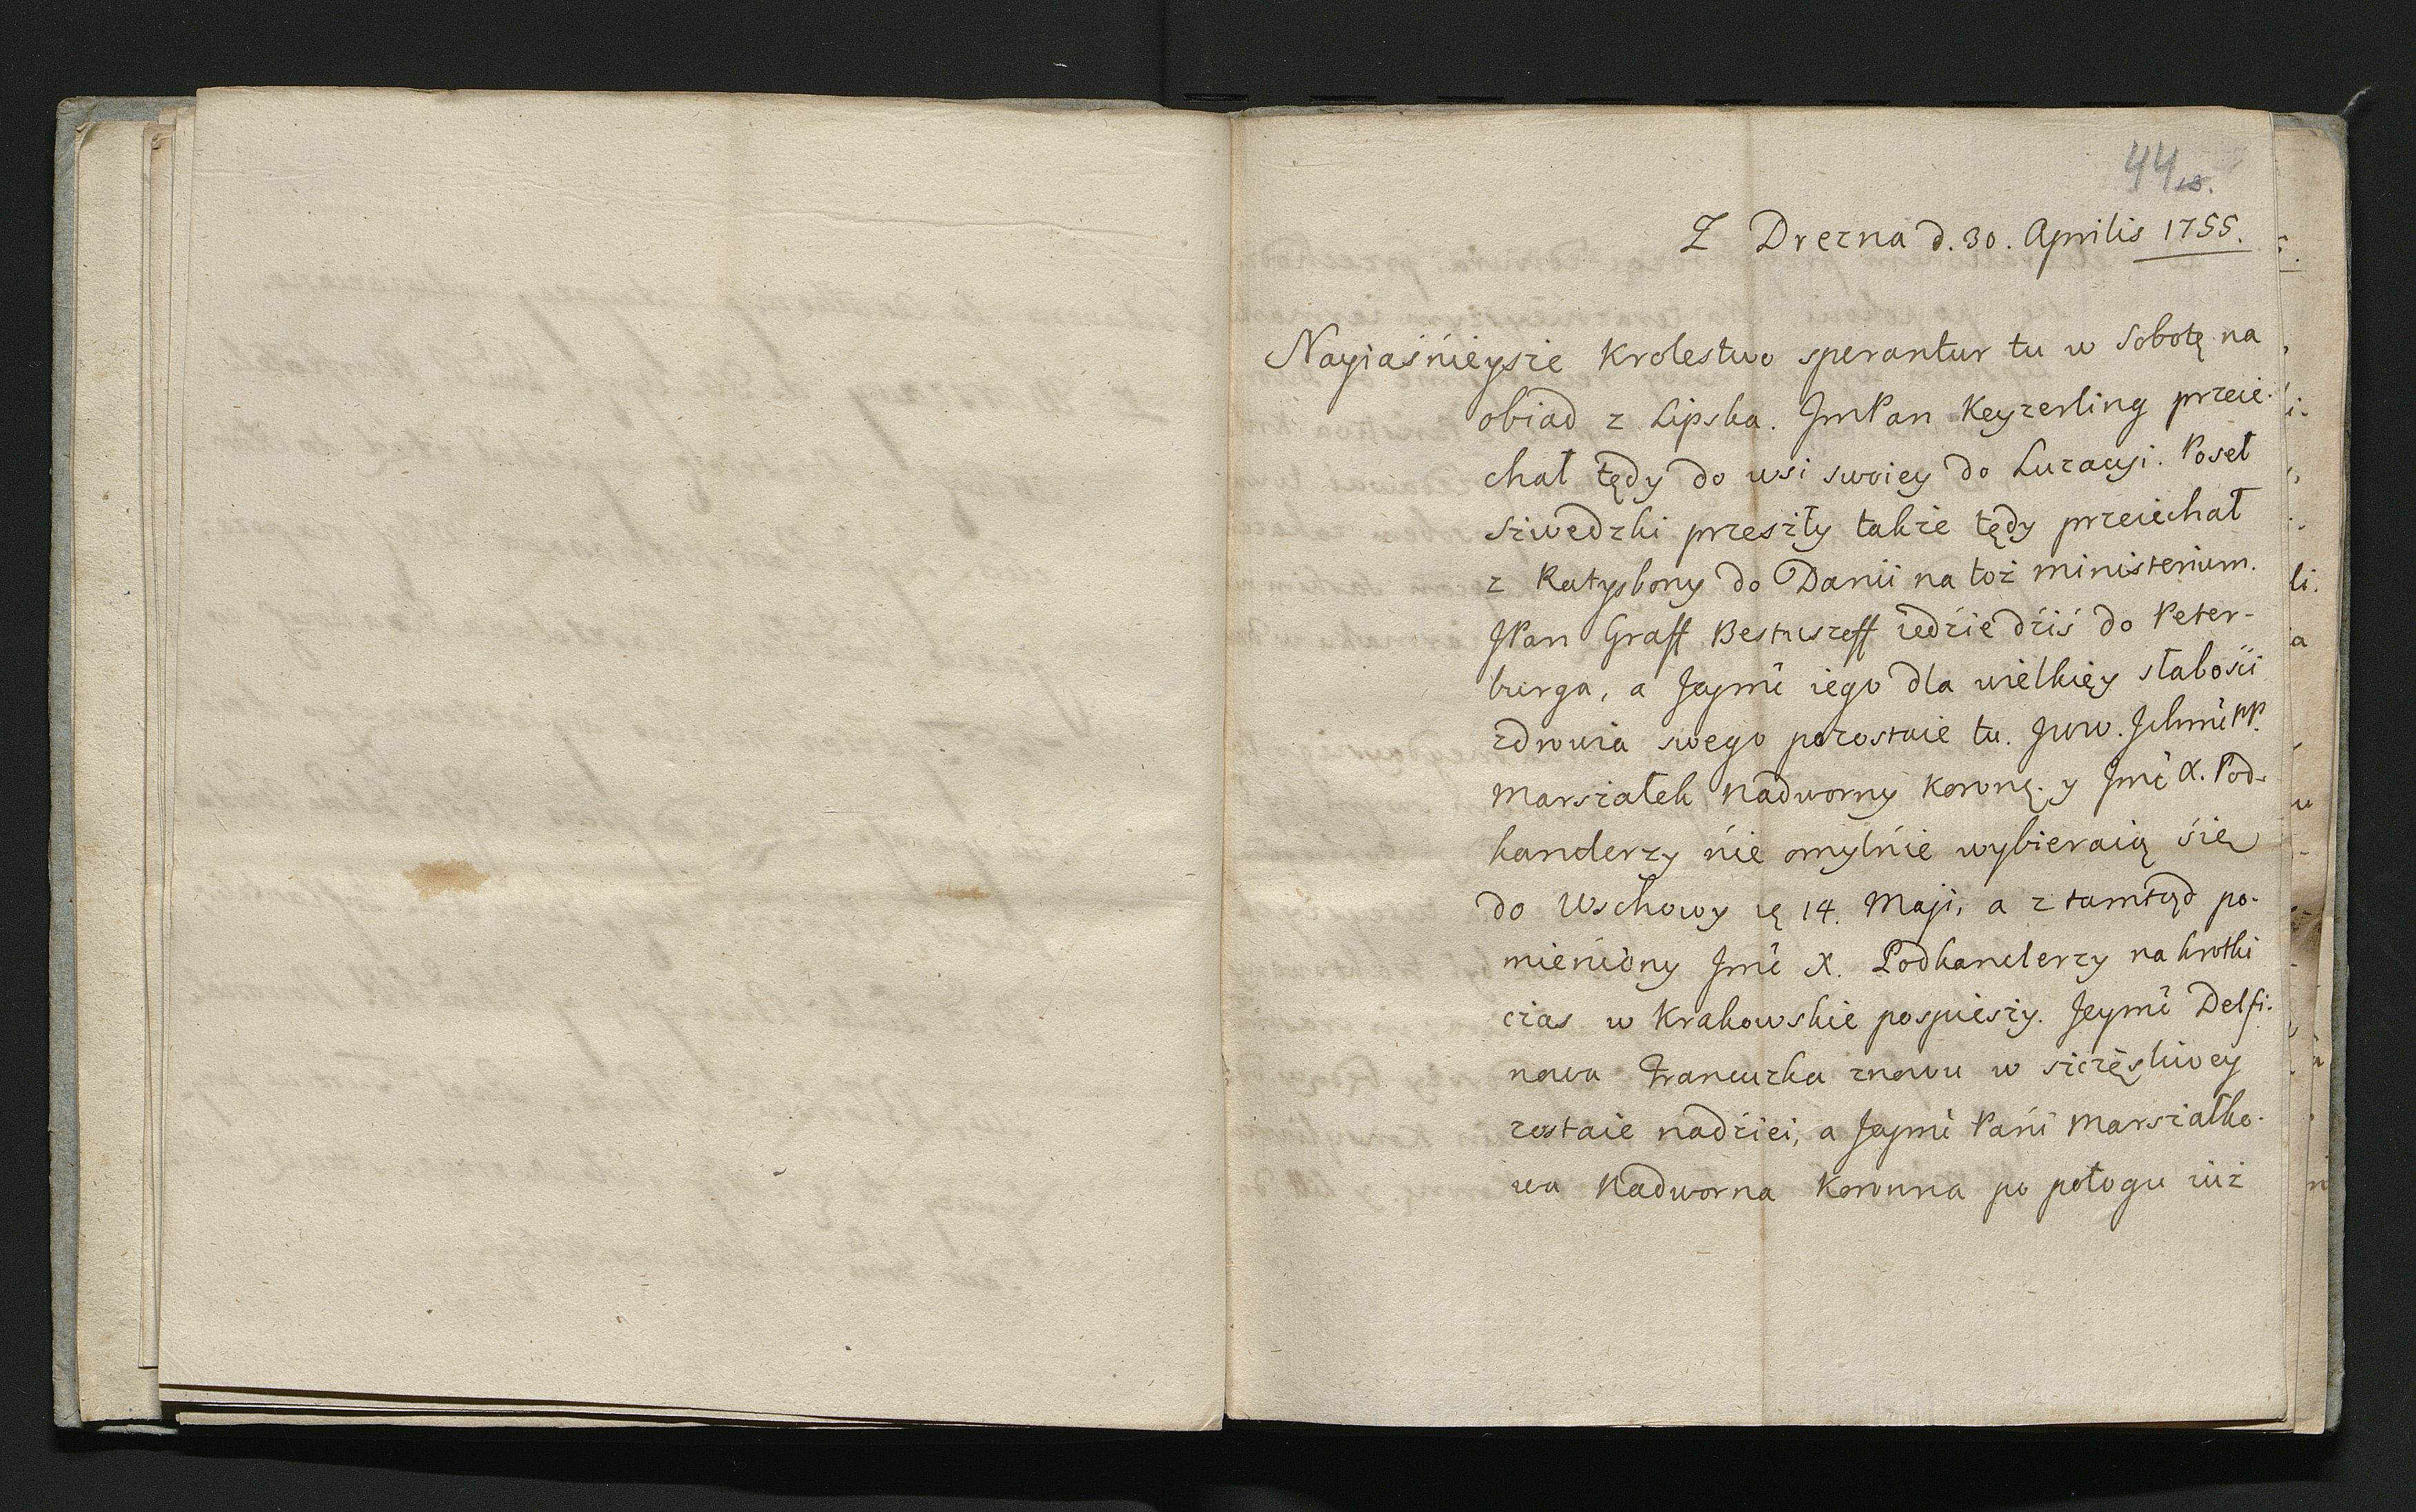 44
18.
Z Drezna d. 30. Aprilis 1755.
Nayiaśnieysze Krolestwo sperantur tu w Sobotę na
obiad z Lipska. JmPan Keyzerling przeie-
chał tędy do wsi swoiey do Luzacyi. Poseł
Szwedzki przeszły także tędy przeiechał
z Ratysbony do Danii na toż ministerium.
JPan Graff Bestuszeff iedzie dziś do Peter-
burga, a Jeymć iego dla wielkięy słabości
zdrowia swego pozostaie tu. Jww. Ichmć PP.
Marszałek Nadworny Koronę. y Jmć X. Pod-
kanclerzy nie omylnie wybieraią się
do Wschowy ię 14. Maji, a z tamtąd po-
mieniony Jmć X. Podkanclerzy na krotki
czas w Krakowskie pospieszy. Jeymć Delfi-
nowa Francuzka znowu w szczęśliwey
zostaie nadziei, a Jeymć Pani Marszałko-
wa Nadworna Koronna po połogu iuż